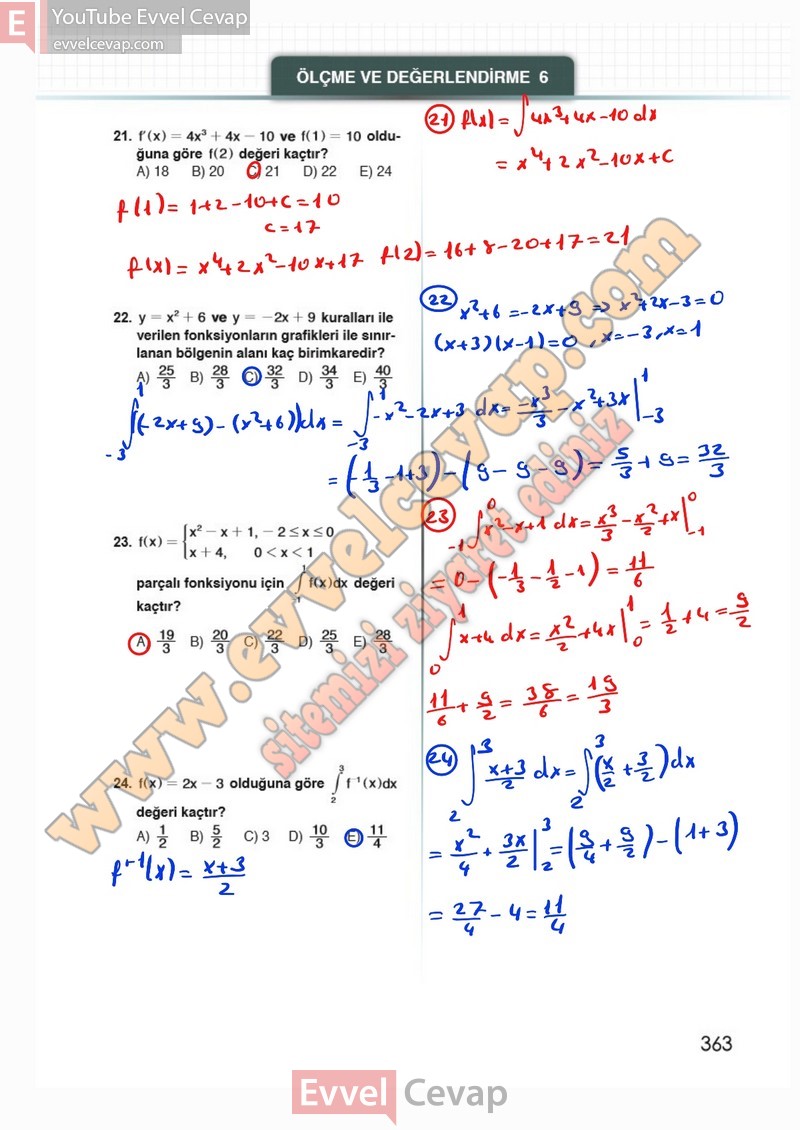 E YouTube Evvel Cevap
evvelcevap.com
ÖLÇME VE DEĞERLENDİRME 6
21. f'(x) = 4x³ + 4x − 10 ve f(1) = 10 oldu-
ğuna göre f(2) değeri kaçtır?
A) 18 B) 20 C) 21 D) 22 E) 24
f(1) = 1+2−10+c = 10
c = 17
f(x) = x⁴+2x²−10x+17 f(2) = 16+8−20+17 = 21
21 f(x) = ∫4x³+4x−10 dx
= x⁴+2x²−10x+c
22. y = x² + 6 ve y = −2x + 9 kuralları ile
verilen fonksiyonların grafikleri ile sınır-
lanan bölgenin alanı kaç birimkaredir?
A) 25/3 B) 28/3 C) 32/3 D) 34/3 E) 40/3
22 x²+6 = −2x+9 ⇒ x²+2x−3=0
(x+3)(x−1)=0, x=−3, x=1
∫₋₃¹(−2x+9)−(x²+6)dx = ∫₋₃¹ −x²−2x+3 dx = −x³/3 −x²+3x|₋₃¹
= (−1/3−1+3)−(9−9−9) = 5/3+9 = 32/3
23. f(x) = { x² − x + 1, −2 ≤ x ≤ 0
x + 4, 0 < x < 1
parçalı fonksiyonu için ∫₋₁¹ f(x)dx değeri
kaçtır?
A) 19/3 B) 20/3 C) 22/3 D) 25/3 E) 28/3
23 ∫₋₁⁰ x²−x+1 dx = x³/3 − x²/2 + x|₋₁⁰
= 0−(−1/3−1/2−1) = 11/6
∫₀¹ x+4 dx = x²/2+4x|₀¹ = 1/2+4 = 9/2
11/6 + 9/2 = 38/6 = 19/3
24. f(x) = 2x − 3 olduğuna göre ∫₂³ f⁻¹(x)dx
değeri kaçtır?
A) 1/2 B) 5/2 C) 3 D) 10/3 E) 11/4
f⁻¹(x) = x+3/2
24 ∫₂³ x+3/2 dx = ∫₂³(x/2+3/2)dx
= x²/4 + 3x/2|₂³ = (9/4+9/2)−(1+3)
= 27/4 − 4 = 11/4
www.evvelcevap.com
sitemizi ziyaret ediniz
363
Evvel Cevap